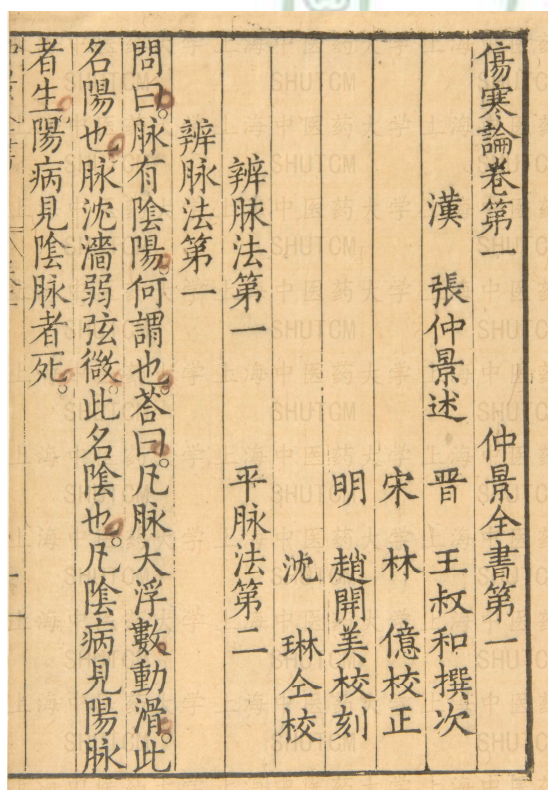 傷寒論卷第一　仲景全書第一
漢　張仲景述　晋　王叔和撰次
宋　林　億校正
明　趙開美校刻
沈　琳仝校
辨脉法第一　平脉法第二
辨脉法第一
問曰。脉有陰陽。何謂也。荅曰。凡脉大浮數動滑。此
名陽也。脉沈濇弱弦微。此名陰也。凡陰病見陽脉
者生。陽病見陰脉者死。
上海中医药大学
SHUTCM